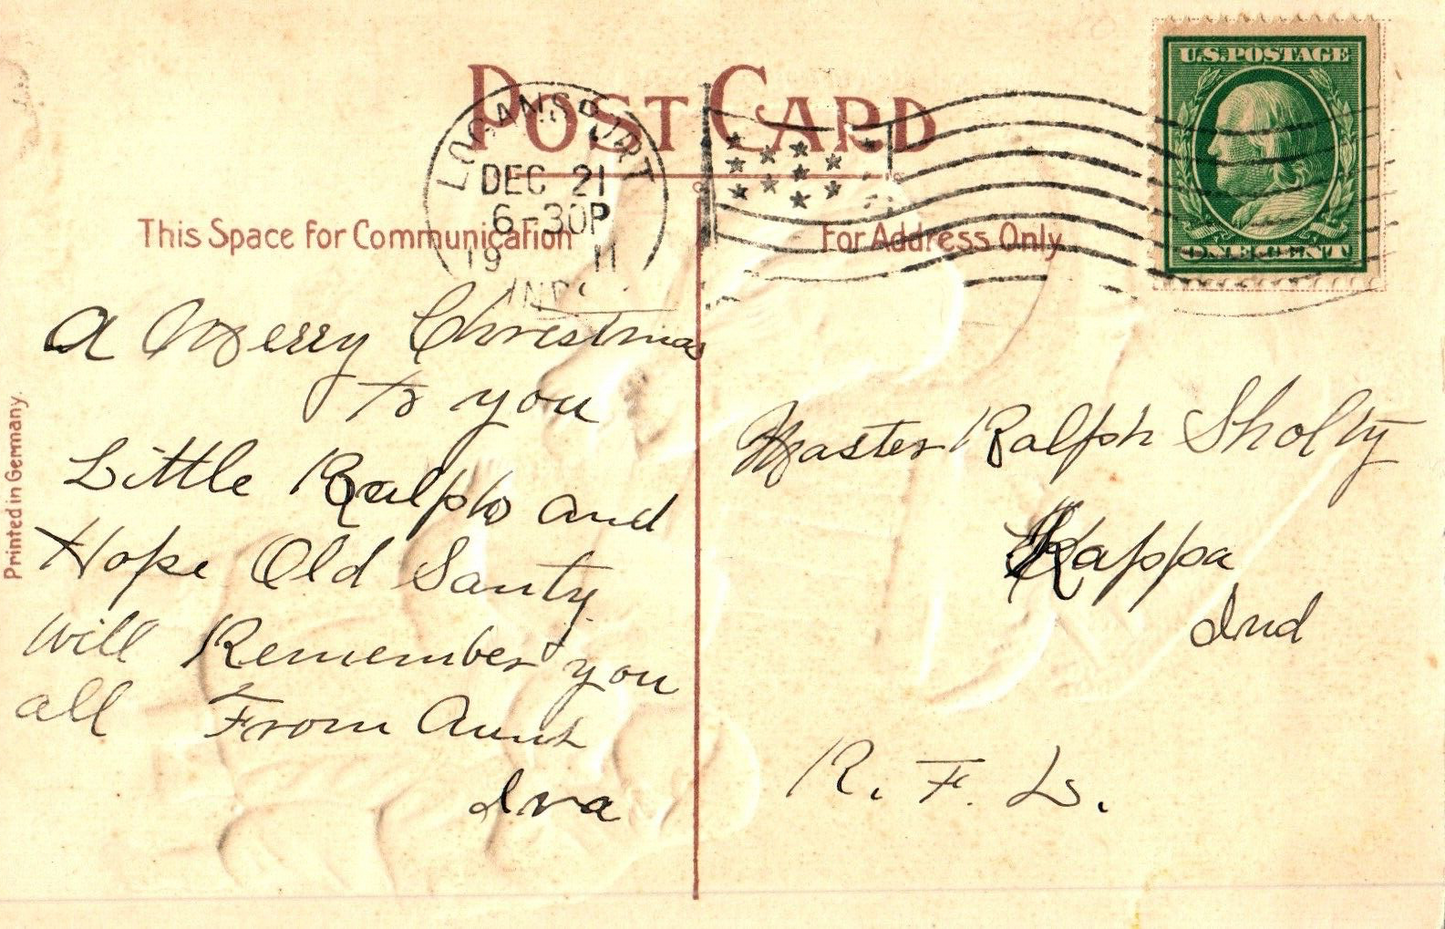 POST CARD
U.S. POSTAGE
ONE CENT
LOGANSPORT
DEC 21
6-30P
19 11
IND.
This Space for Communication
For Address Only
Printed in Germany.
A Merry Christmas
to you
Little Ralph and
Hope Old Santy
will Remember you
all From Aunt
Iva
Master Ralph Sholty
Kappa
Ind
R. F. D.